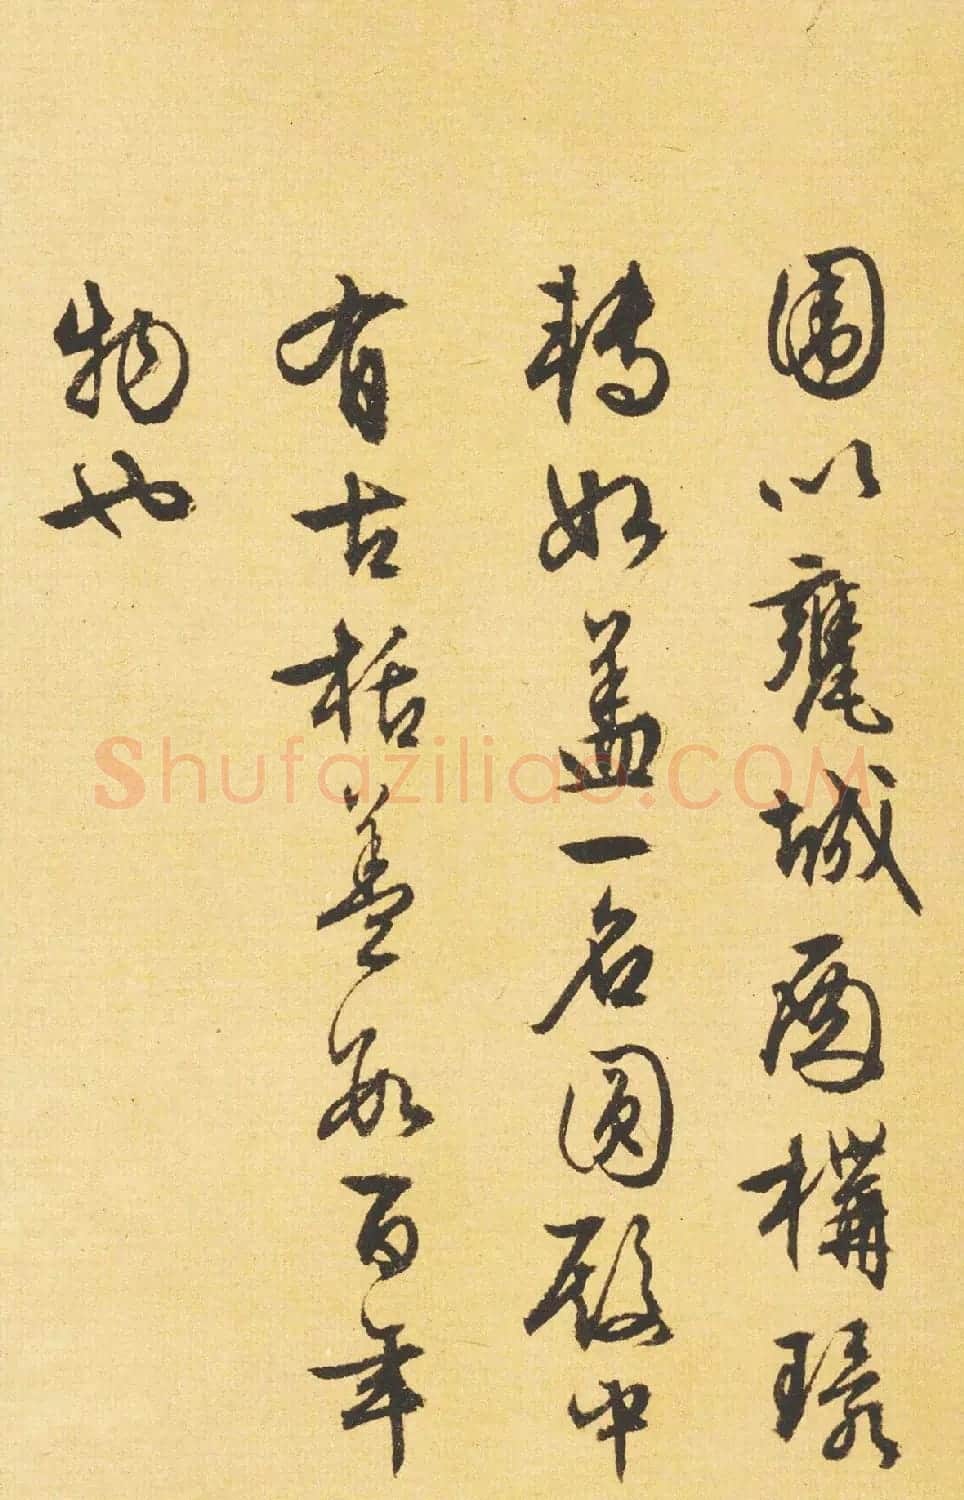 圍以甕城西構環
轉如蓋一名圓殿中
有古栝蓋數百年
物也
Shufaziliao.COM